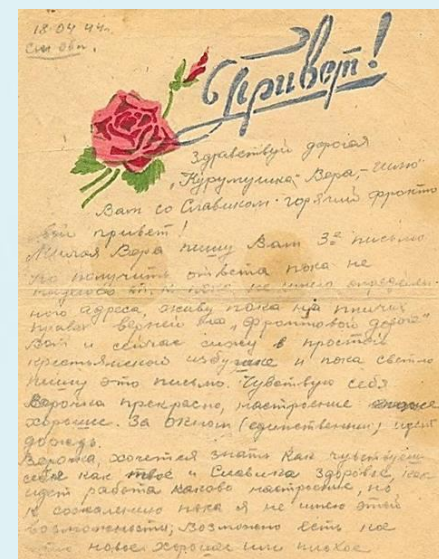 18.04.44г.
См. обр.
Привет!
Здравствуй дорогая
"Курумушка" Вера, - шлю
Вам со Славиком горячий фронто
вой привет!
Милая Вера пишу Вам 3е письмо
но получить ответа пока не
надеюсь т. к. пока не имею определен-
ного адреса, живу пока на птичьих
правах верней на "фронтовой дороге"
Вот и сейчас сижу в простой
крестьянской избушке и пока светло
пишу это письмо. Чувствую себя
Верочка прекрасно, настроение
хорошее. За окном (единственным) идет
дождь.
Верочка, хочется знать как чувствуешь
себя как твое и Славика здоровье, как
идет работа каково настроение, но
к сожалению пока я не имею этой
возможности, возможно есть что
новое хорошее или плохое